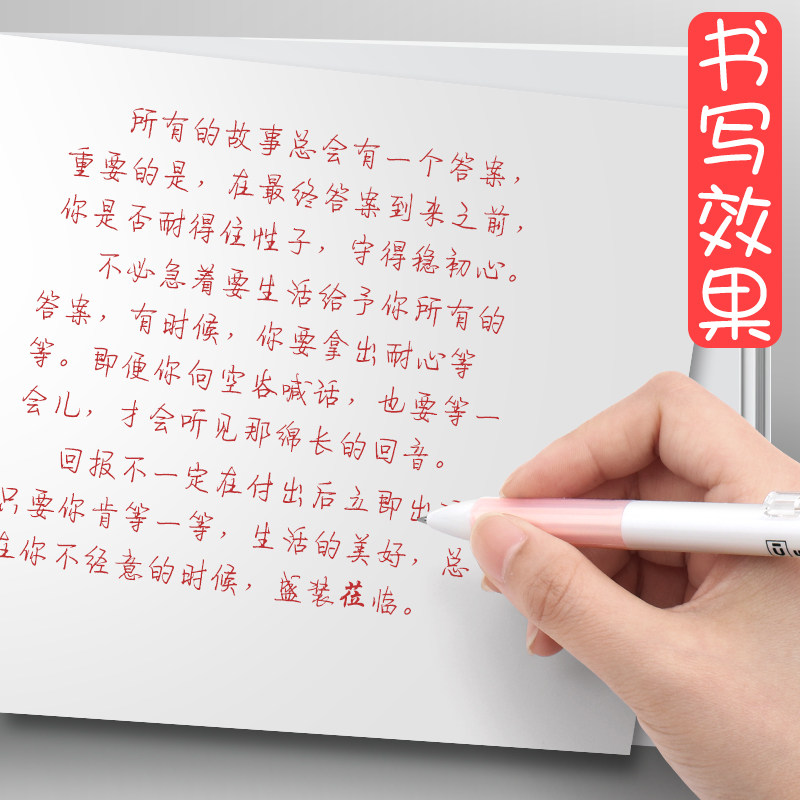 书写效果
所有的故事总会有一个答案，
重要的是，在最终答案到来之前，
你是否耐得住性子，守得稳初心。
不必急着要生活给予你所有的
答案，有时候，你要拿出耐心等
等。即便你向空谷喊话，也要等一
会儿，才会听见那绵长的回音。
回报不一定在付出后立即出
只要你肯等一等，生活的美好，总
在你不经意的时候，盛装莅临。